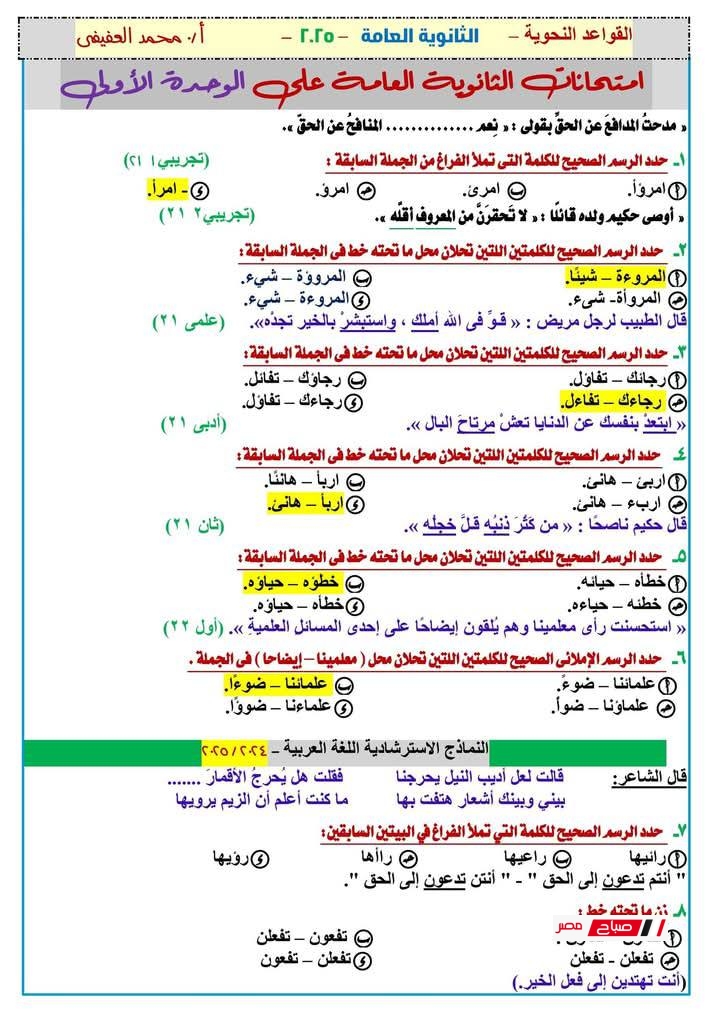 القواعد النحوية – الثانوية العامة – ٢٠٢٥ – أ/ محمد العفيفى
امتحانات الثانوية العامة على الوحدة الأولى
« مدحتُ المدافعَ عن الحقِّ بقولى : « نِعم .............. المنافحُ عن الحقّ ».
١ـ حدد الرسم الصحيح للكلمة التى تملأ الفراغ من الجملة السابقة : (تجريبي١ ٢١)
أ امروأ. ب امرئ. جـ امرؤ. د - امرأ.
« أوصى حكيم ولده قائلا : « لا تَحقرَنَّ من المعروف أقلَّه ». (تجريبى٢ ٢١)
٢ـ حدد الرسم الصحيح للكلمتين اللتين تحلان محل ما تحته خط فى الجملة السابقة:
أ المروءة – شيئًا. ب المروؤة – شيء.
جـ المروأة- شىء. د المروءة – شيء.
قال الطبيب لرجل مريض : « قـوِّ فى الله أملك ، واستبشرْ بالخير تجدْه». (علمى ٢١)
٣ـ حدد الرسم الصحيح للكلمتين اللتين تحلان محل ما تحته خط فى الجملة السابقة:
أ رجائك – تفاؤل. ب رجاؤك – تفائل.
جـ رجاءك – تفاءل. د رجاءك – تفاؤل.
« ابتعدْ بنفسك عن الدنايا تعشْ مرتاحَ البال ». (أدبى ٢١)
٤ـ حدد الرسم الصحيح للكلمتين اللتين تحلان محل ما تحته خط فى الجملة السابقة:
أ اربئ – هانئ. ب اربأ – هانئًا.
جـ اربء – هانئ. د اربأ – هانئ.
قال حكيم ناصحًا : « من كَثُرَ ذنبُه قـلَّ خجلُه ». (ثان ٢١)
٥ـ حدد الرسم الصحيح للكلمتين اللتين تحلان محل ما تحته خط فى الجملة السابقة:
أ خطأه – حيائه. ب خطؤه – حياؤه.
جـ خطئه – حياءه. د خطأه – حياؤه.
« استحسنت رأى معلمينا وهم يُلقون إيضاحًا على إحدى المسائل العلميةِ ». (أول ٢٢)
٦ـ حدد الرسم الإملائى الصحيح للكلمتين اللتين تحلان محل ( معلمينا – إيضاحا ) فى الجملة .
أ علمائنا – ضوءً. ب علمائنا – ضوءًا.
جـ علماؤنا – ضوأ. د علماءنا – ضووًا.
النماذج الاسترشادية اللغة العربية – ٢٠٢٤ / ٢٠٢٥
قال الشاعر: قالت لعل أديب النيل يحرجنا فقلت هل يُحرجُ الأقمارَ .......
بيني وبينك أشعار هتفت بها ما كنت أعلم أن الريم يرويها
٧ـ حدد الرسم الصحيح للكلمة التي تملأ الفراغ في البيتين السابقين:
أ رائيها ب راعيها جـ راأها د رؤيها
" أنتم تدعون إلى الحق " - " أنتن تدعون إلى الحق ".
٨ـ زن ما تحته خط :
صباح مصر
أ ب تفعون – تفعلن
جـ تفعلن - تفعلن د تفعلن – تفعون
(أنت تهتدين إلى فعل الخير.)